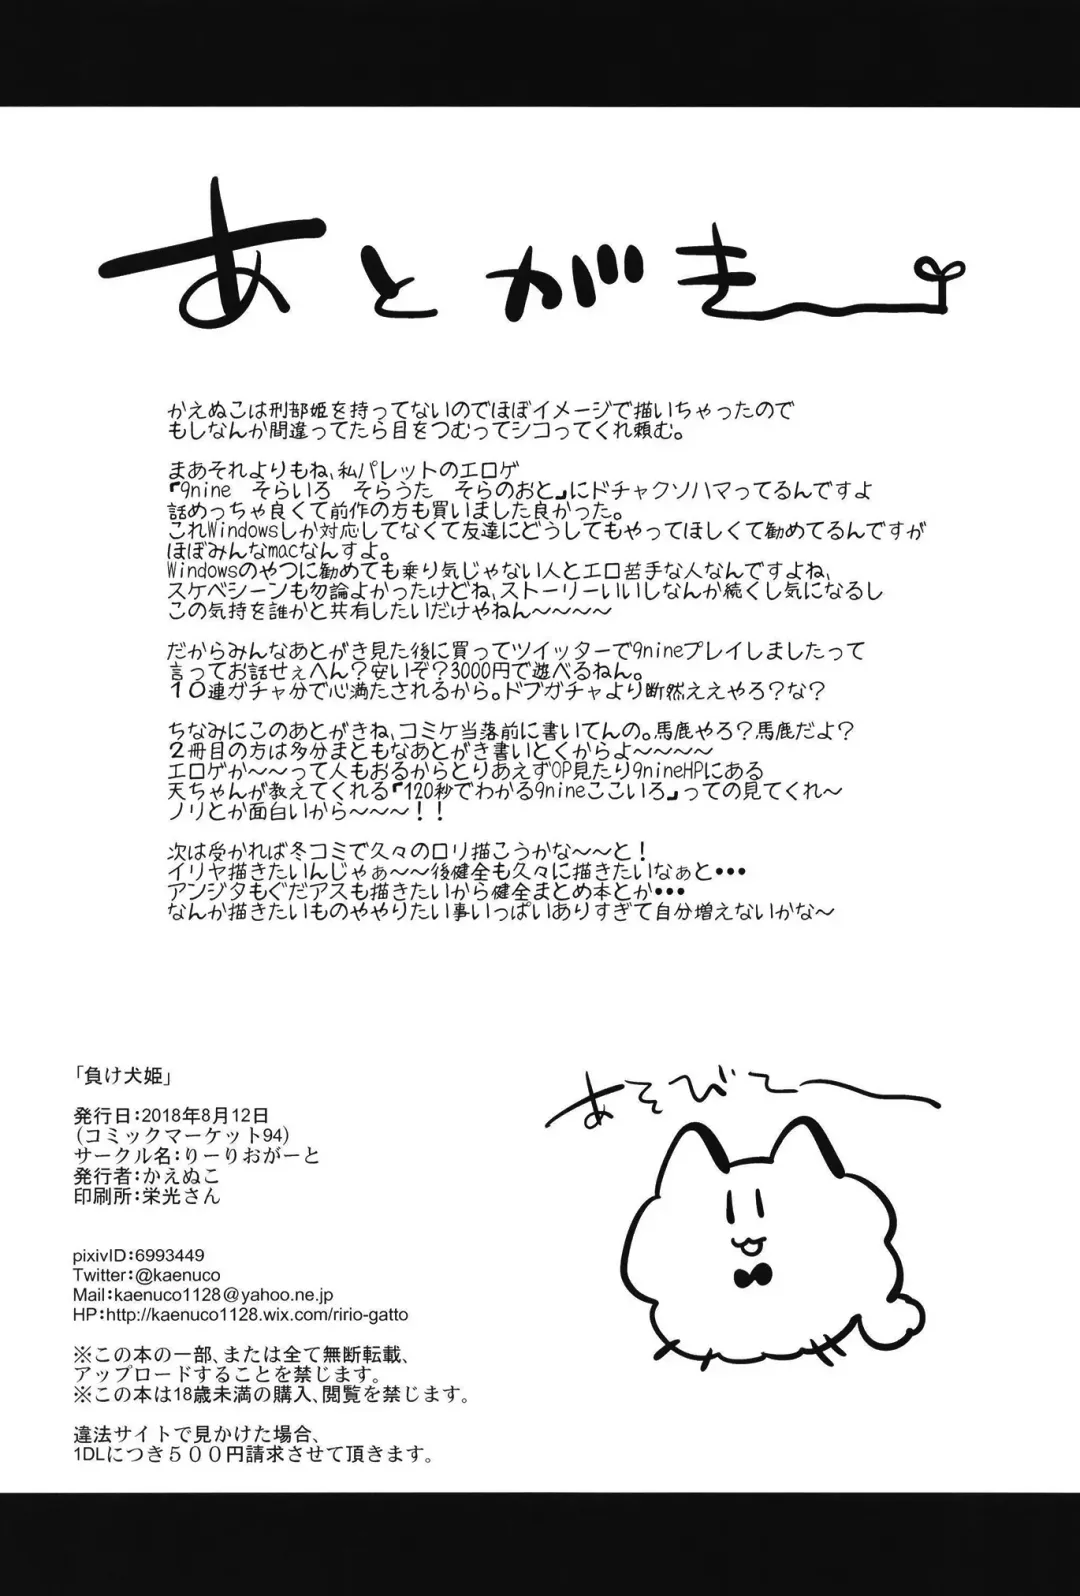 あとがき
かえぬこは刑部姫を持ってないのでほぼイメージで描いちゃったので
もしなんか間違ってたら目をつむってシコってくれ頼む。
まあそれよりもね、私パレットのエロゲ
『9nine そらいろ そらうた そらのおと』にドチャクソハマってるんですよ
話めっちゃ良くて前作の方も買いました良かった。
これWindowsしか対応してなくて友達にどうしてもやってほしくて勧めてるんですが
ほぼみんなmacなんすよ。
Windowsのやつに勧めても乗り気じゃない人とエロ苦手な人なんですよね、
スケベシーンも勿論よかったけどね、ストーリーいいしなんか続くし気になるし
この気持を誰かと共有したいだけやねん〜〜〜〜
だからみんなあとがき見た後に買ってツイッターで9nineプレイしましたって
言ってお話せぇへん？安いぞ？3000円で遊べるねん。
１０連ガチャ分で心満たされるから。ドブガチャより断然ええやろ？な？
ちなみにこのあとがきね、コミケ当落前に書いてんの。馬鹿やろ？馬鹿だよ？
２冊目の方は多分まともなあとがき書いとくからよ〜〜〜〜
エロゲか〜〜って人もおるからとりあえずOP見たり9nineHPにある
天ちゃんが教えてくれる『120秒でわかる9nineここいろ』っての見てくれ〜
ノリとか面白いから〜〜〜！！
次は受かれば冬コミで久々のロリ描こうかな〜〜と！
イリヤ描きたいんじゃぁ〜〜後健全も久々に描きたいなぁと・・・
アンジタもぐだアスも描きたいから健全まとめ本とか・・・
なんか描きたいものややりたい事いっぱいありすぎて自分増えないかな〜
「負け犬姫」
発行日：2018年8月12日
（コミックマーケット94）
サークル名：りーりおがーと
発行者：かえぬこ
印刷所：栄光さん
pixivID：6993449
Twitter：@kaenuco
Mail：kaenuco1128@yahoo.ne.jp
HP：http://kaenuco1128.wix.com/ririo-gatto
※この本の一部、または全て無断転載、
アップロードすることを禁じます。
※この本は18歳未満の購入、閲覧を禁じます。
違法サイトで見かけた場合、
1DLにつき５００円請求させて頂きます。
あそびて